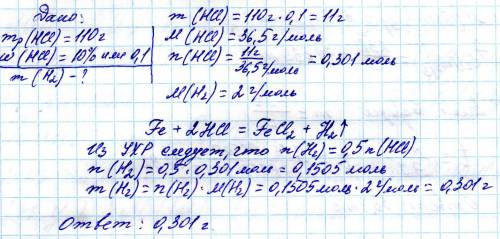 Дано:
mр(HCl) = 110 г
ω(HCl) = 10% или 0,1
m(H₂) - ?
m(HCl) = 110 г · 0,1 = 11 г
M(HCl) = 36,5 г/моль
n(HCl) = 11 г / 36,5 г/моль = 0,301 моль
M(H₂) = 2 г/моль
Fe + 2HCl = FeCl₂ + H₂↑
Из УХР следует, что n(H₂) = 0,5 n(HCl)
n(H₂) = 0,5 · 0,301 моль = 0,1505 моль
m(H₂) = n(H₂) · M(H₂) = 0,1505 моль · 2 г/моль = 0,301 г
Ответ: 0,301 г.